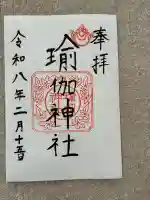 奉拝
瑜伽神社
令和八年二月十五日